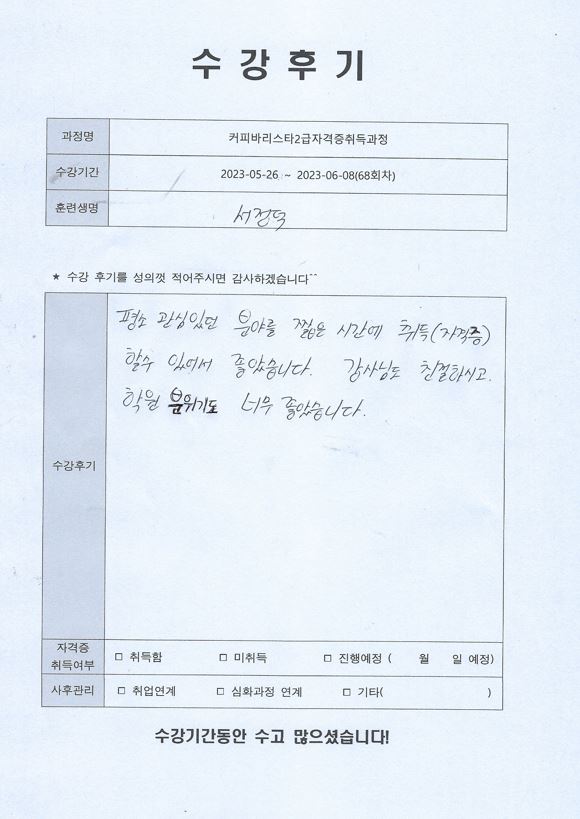 수 강 후 기
과정명 커피바리스타2급자격증취득과정
수강기간 2023-05-26 ~ 2023-06-08(68회차)
훈련생명 서정덕
★ 수강 후기를 성의껏 적어주시면 감사하겠습니다^^
수강후기
평소 관심있던 분야를 짧은 시간에 취득(자격증)
할수 있어서 좋았습니다. 강사님도 친절하시고.
학원 분위기도 너무 좋았습니다.
자격증
취득여부 □ 취득함 □ 미취득 □ 진행예정 ( 월 일 예정)
사후관리 □ 취업연계 □ 심화과정 연계 □ 기타( )
수강기간동안 수고 많으셨습니다!